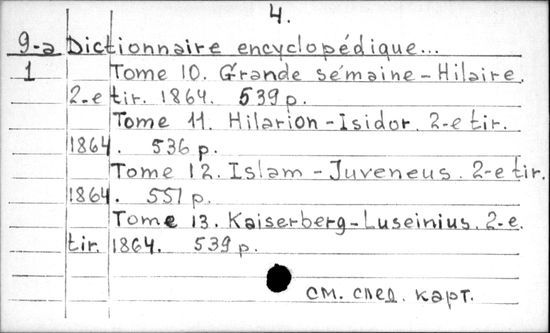 4.
9-a Dictionnaire encyclopédique...
1 Tome 10. Grande sémaine - Hilaire.
2-e tir. 1864. 539 p.
Tome 11. Hilarion - Isidor. 2-e tir.
1864. 536 p.
Tome 12. Islam - Juveneus. 2-e tir.
1864. 551 p.
Tome 13. Kaiserberg - Luseinius. 2-e
tir. 1864. 539 p.
см. след. карт.